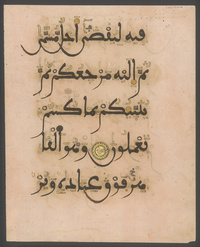 فيه ليقضى اجل مسمى
ثم اليه مرجعكم ثم
ينبئكم بما كنتم
تعملون وهو القا
هر فوق عباده وير